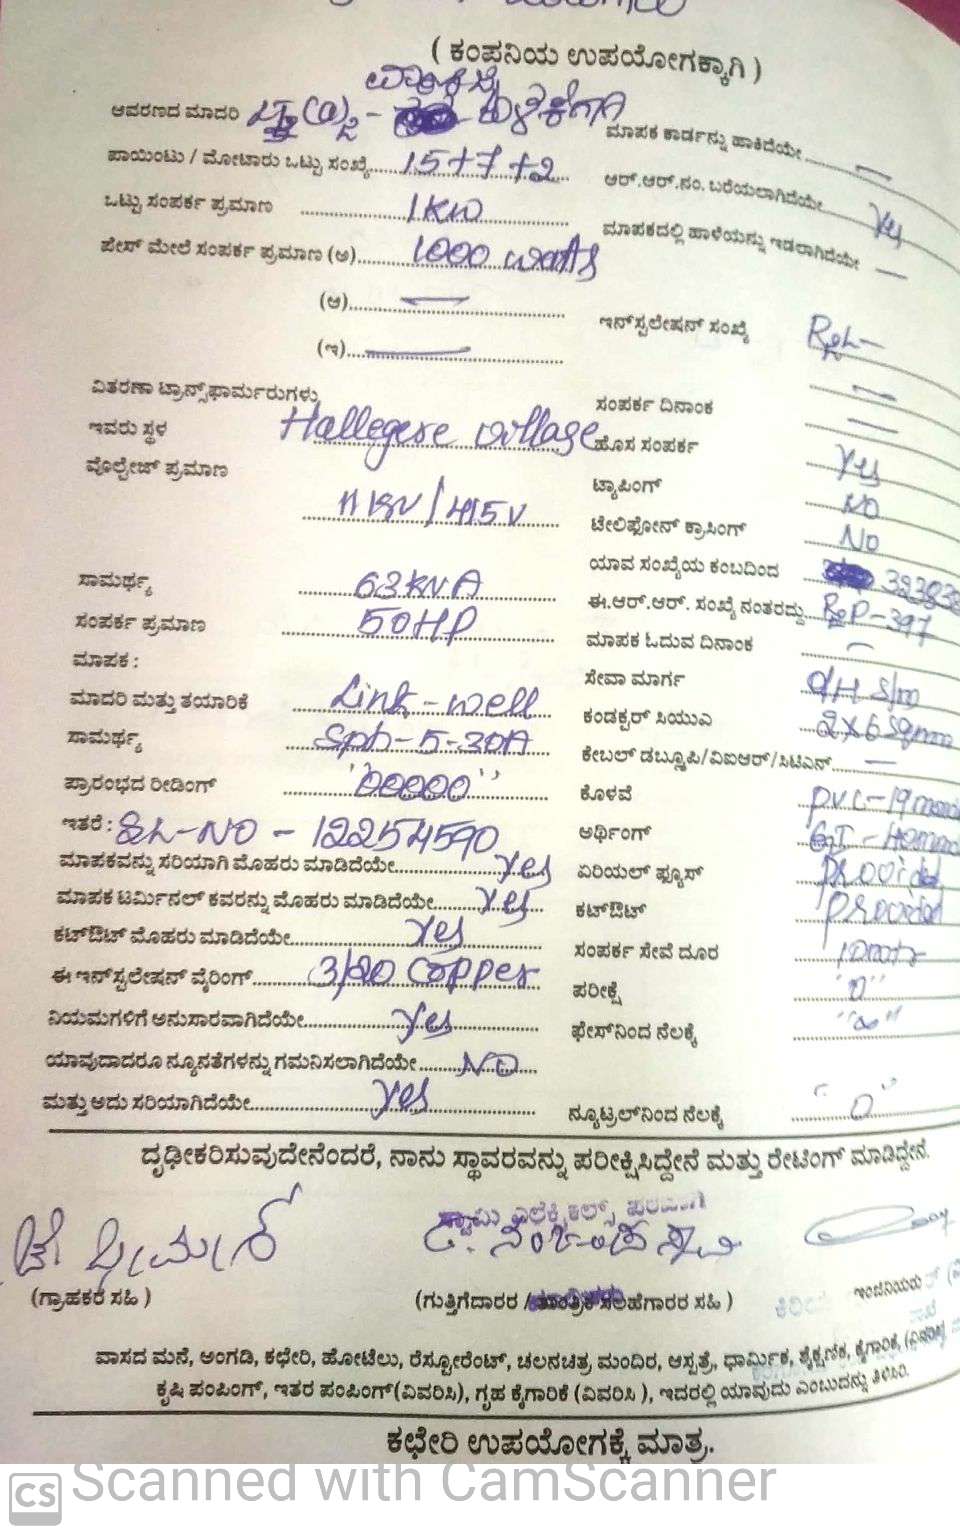 ( ಕಂಪನಿಯ ಉಪಯೋಗಕ್ಕಾಗಿ )
ಆವರಣದ ಮಾದರಿ
ಪಾಯಿಂಟು / ಮೋಟಾರು ಒಟ್ಟು ಸಂಖ್ಯೆ 15+7+2
ಒಟ್ಟು ಸಂಪರ್ಕ ಪ್ರಮಾಣ 1KW
ಪೇಸ್ ಮೇಲೆ ಸಂಪರ್ಕ ಪ್ರಮಾಣ (ಅ) 1000 watts
(ಆ)
(ಇ)
ವಿತರಣಾ ಟ್ರಾನ್ಸ್‌ಫಾರ್ಮರುಗಳು
ಇವರು ಸ್ಥಳ Hallegere village
ವೊಲ್ಟೇಜ್ ಪ್ರಮಾಣ
11KV/415V
ಸಾಮರ್ಥ್ಯ 63KVA
ಸಂಪರ್ಕ ಪ್ರಮಾಣ 50HP
ಮಾಪಕ :
ಮಾದರಿ ಮತ್ತು ತಯಾರಿಕೆ Link-well
ಸಾಮರ್ಥ್ಯ Sph-5-30A
ಪ್ರಾರಂಭದ ರೀಡಿಂಗ್ "00000"
ಇತರೆ : SL-NO - 12254590
ಮಾಪಕವನ್ನು ಸರಿಯಾಗಿ ಮೊಹರು ಮಾಡಿದೆಯೇ Yes
ಮಾಪಕ ಟರ್ಮಿನಲ್ ಕವರನ್ನು ಮೊಹರು ಮಾಡಿದೆಯೇ Yes
ಕಟ್‌ಔಟ್ ಮೊಹರು ಮಾಡಿದೆಯೇ Yes
ಈ ಇನ್‌ಸ್ಟಲೇಷನ್ ವೈರಿಂಗ್ 3/20 Copper
ನಿಯಮಗಳಿಗೆ ಅನುಸಾರವಾಗಿದೆಯೇ Yes
ಯಾವುದಾದರೂ ನ್ಯೂನತೆಗಳನ್ನು ಗಮನಿಸಲಾಗಿದೆಯೇ NO
ಮತ್ತು ಅದು ಸರಿಯಾಗಿದೆಯೇ Yes
ಮಾಪಕ ಕಾರ್ಡನ್ನು ಹಾಕಿದೆಯೇ
ಆರ್.ಆರ್.ನಂ. ಬರೆಯಲಾಗಿದೆಯೇ Yes
ಮಾಪಕದಲ್ಲಿ ಹಾಳೆಯನ್ನು ಇಡಲಾಗಿದೆಯೇ
ಇನ್‌ಸ್ಟಲೇಷನ್ ಸಂಖ್ಯೆ
ಸಂಪರ್ಕ ದಿನಾಂಕ
ಹೊಸ ಸಂಪರ್ಕ Yes
ಟ್ಯಾಪಿಂಗ್ NO
ಟೇಲಿಫೋನ್ ಕ್ರಾಸಿಂಗ್ NO
ಯಾವ ಸಂಖ್ಯೆಯ ಕಂಬದಿಂದ
ಈ.ಆರ್.ಆರ್. ಸಂಖ್ಯೆ ನಂತರದ್ದು
ಮಾಪಕ ಓದುವ ದಿನಾಂಕ
ಸೇವಾ ಮಾರ್ಗ O/H S/m
ಕಂಡಕ್ಟರ್ ಸಿಯುಎ 2x6 Sqmm
ಕೇಬಲ್ ಡಬ್ಲ್ಯೂಪಿ/ವಿಐಆರ್/ಸಿಟಿಎಸ್
ಕೊಳವೆ P.V.C-19
ಅರ್ಥಿಂಗ್
ಏರಿಯಲ್ ಫ್ಯೂಸ್ Provided
ಕಟ್‌ಔಟ್ Provided
ಸಂಪರ್ಕ ಸೇವೆ ದೂರ
ಪರೀಕ್ಷೆ "0"
ಫೇಸ್‌ನಿಂದ ನೆಲಕ್ಕೆ "∞"
ನ್ಯೂಟ್ರಲ್‌ನಿಂದ ನೆಲಕ್ಕೆ "0"
ದೃಢೀಕರಿಸುವುದೇನೆಂದರೆ, ನಾನು ಸ್ಥಾವರವನ್ನು ಪರೀಕ್ಷಿಸಿದ್ದೇನೆ ಮತ್ತು ರೇಟಿಂಗ್ ಮಾಡಿದ್ದೇನೆ.
(ಗ್ರಾಹಕರ ಸಹಿ )
(ಗುತ್ತಿಗೆದಾರರ / ತಾಂತ್ರಿಕ ಸಲಹೆಗಾರರ ಸಹಿ )
ಇಂಜಿನಿಯರು
ವಾಸದ ಮನೆ, ಅಂಗಡಿ, ಕಛೇರಿ, ಹೋಟೆಲು, ರೆಸ್ಟೋರೆಂಟ್, ಚಲನಚಿತ್ರ ಮಂದಿರ, ಆಸ್ಪತ್ರೆ, ಧಾರ್ಮಿಕ, ಶೈಕ್ಷಣಿಕ, ಕೈಗಾರಿಕೆ, (ವಿವರಿಸಿ)
ಕೃಷಿ ಪಂಪಿಂಗ್, ಇತರ ಪಂಪಿಂಗ್ (ವಿವರಿಸಿ), ಗೃಹ ಕೈಗಾರಿಕೆ (ವಿವರಿಸಿ ), ಇದರಲ್ಲಿ ಯಾವುದು ಎಂಬುದನ್ನು ತಿಳಿಸಿರಿ.
ಕಛೇರಿ ಉಪಯೋಗಕ್ಕೆ ಮಾತ್ರ.
CS Scanned with CamScanner